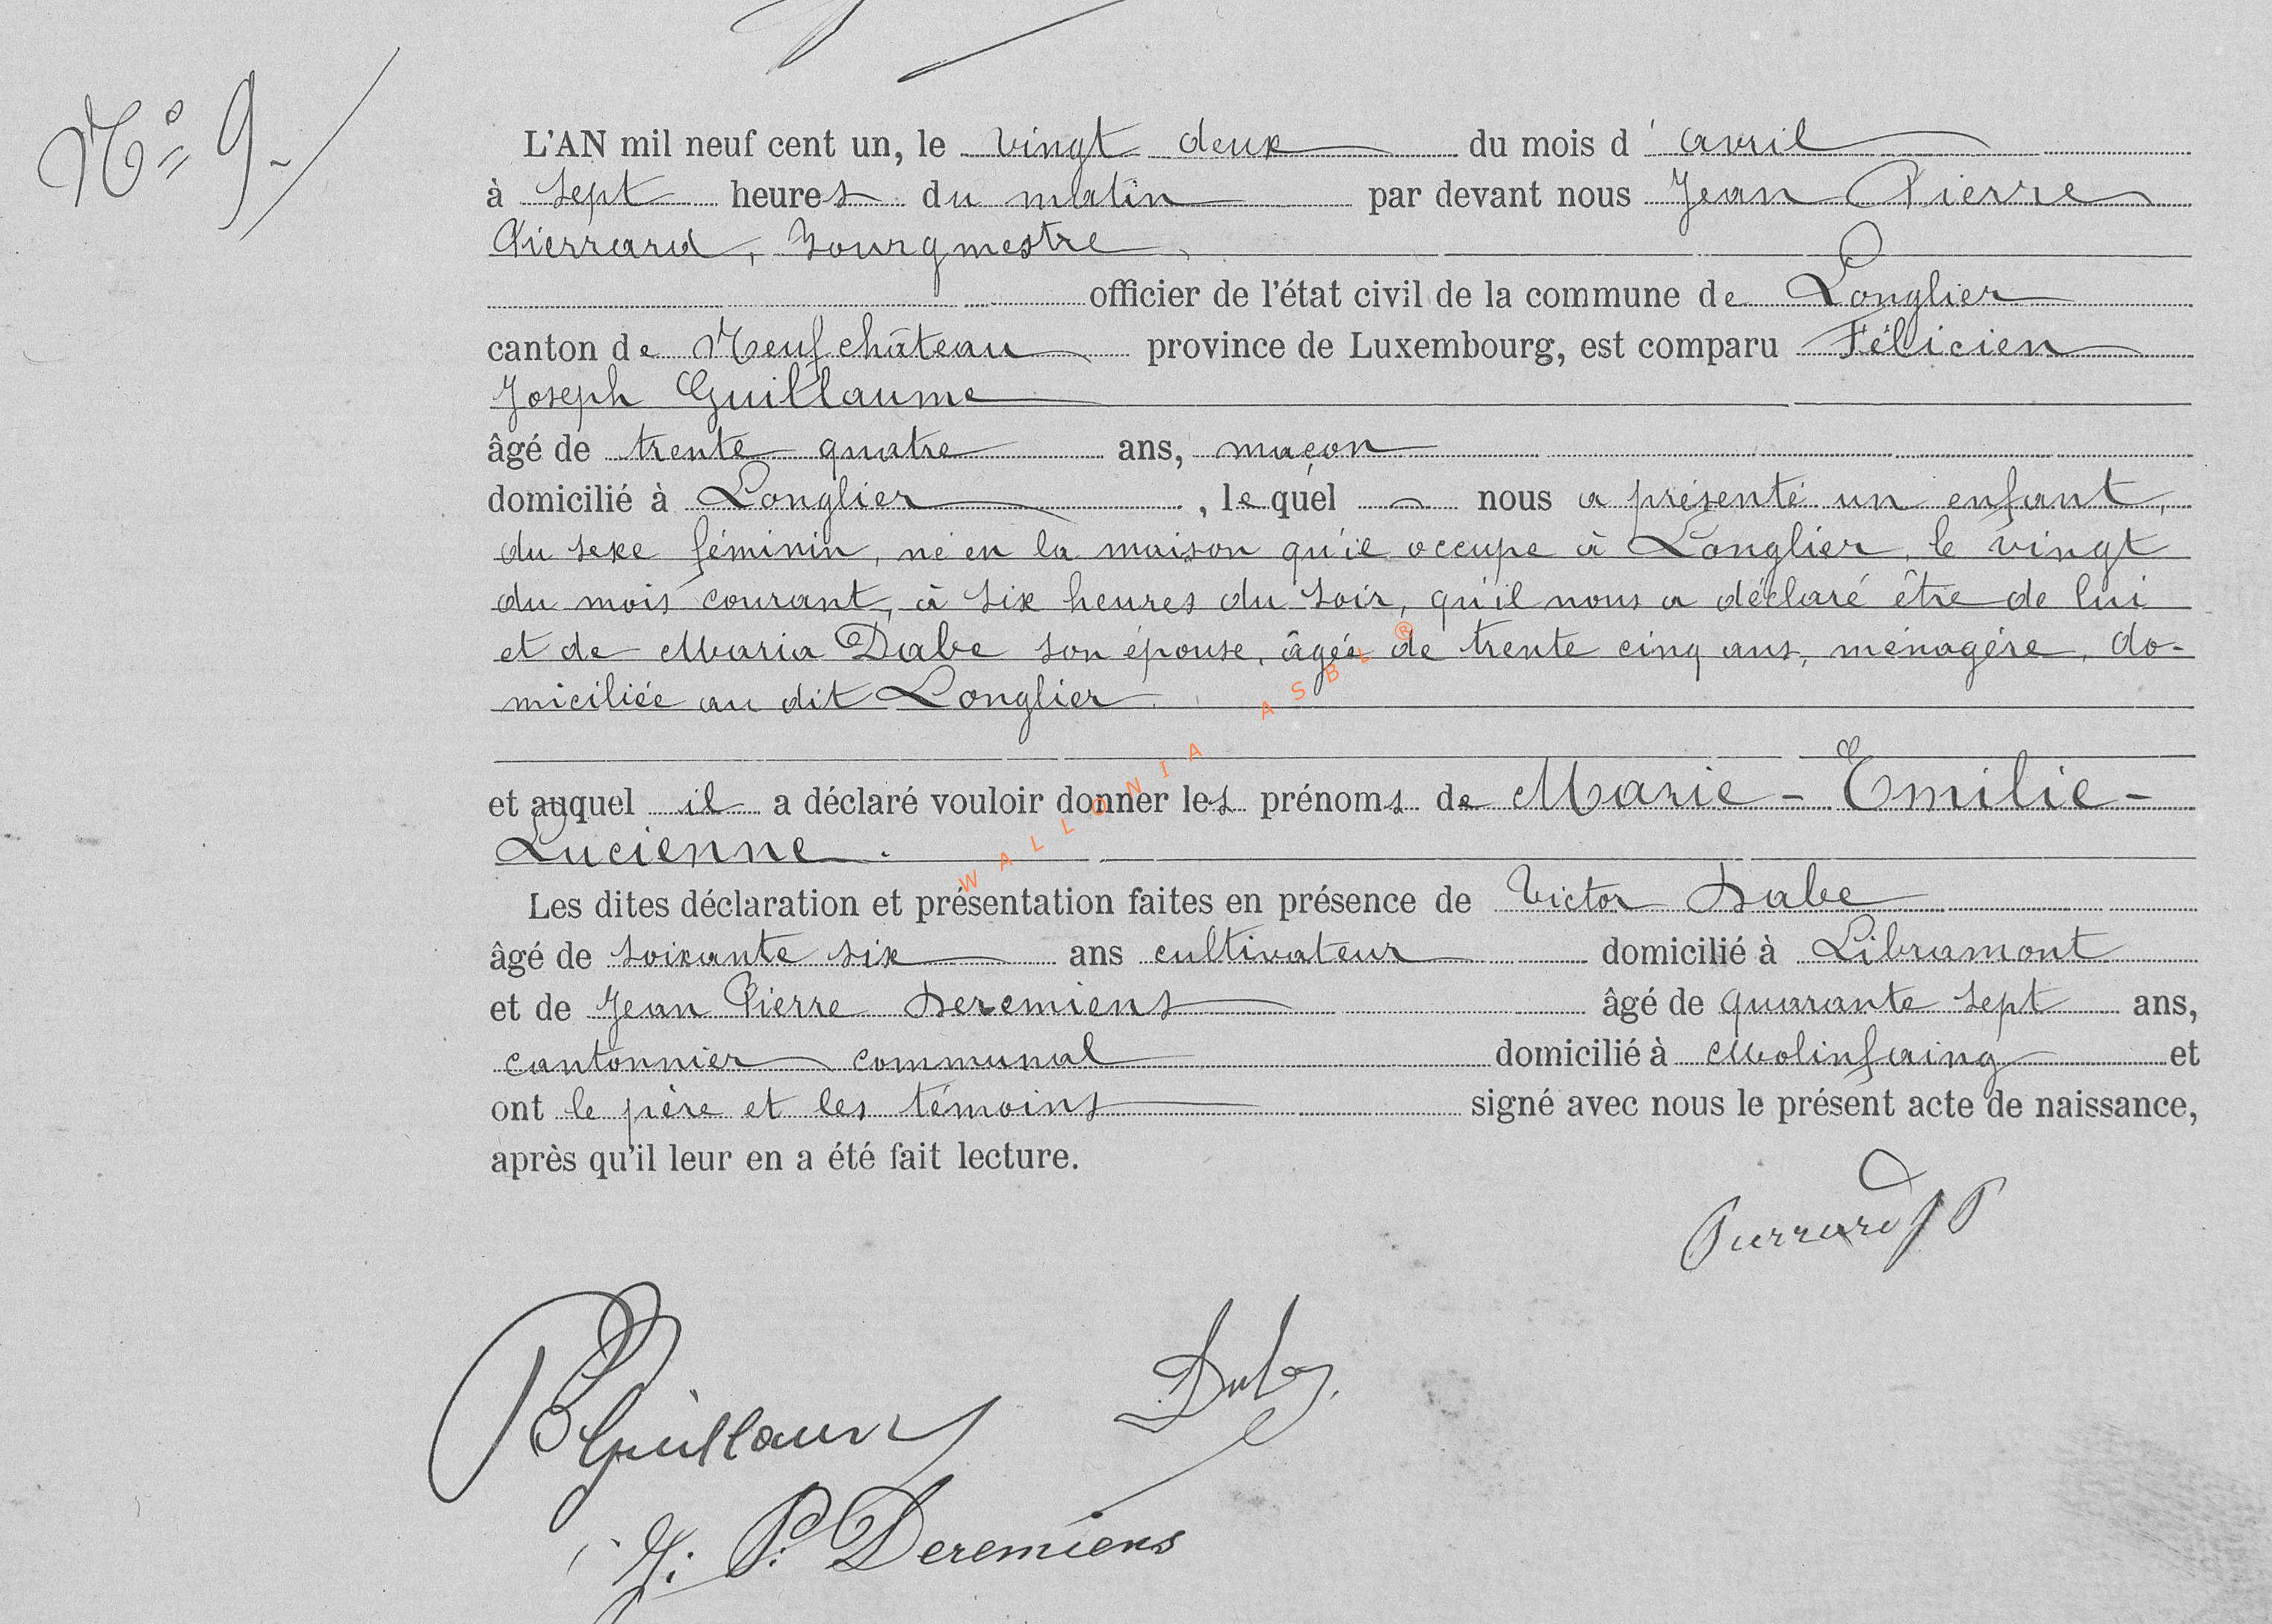 N° 9
L'AN mil neuf cent un, le vingt deux du mois d' avril
à sept heures du matin par devant nous Jean Pierre
Pierrard, Bourgmestre
officier de l'état civil de la commune de Longlier
canton de Neufchâteau province de Luxembourg, est comparu Félicien
Joseph Guillaume
âgé de trente quatre ans, maçon
domicilié à Longlier, lequel nous a présenté un enfant,
du sexe féminin, né en la maison qu'il occupe à Longlier, le vingt
du mois courant, à six heures du soir, qu'il nous a déclaré être de lui
et de Maria Dabe son épouse, âgée de trente cinq ans, ménagère, do-
miciliée au dit Longlier.
et auquel il a déclaré vouloir donner les prénoms de Marie - Emilie -
Lucienne.
Les dites déclaration et présentation faites en présence de Victor Dabe
âgé de soixante six ans cultivateur domicilié à Libramont
et de Jean Pierre Deremiens âgé de quarante sept ans,
cantonnier communal domicilié à Molinfaing et
ont le père et les témoins signé avec nous le présent acte de naissance,
après qu'il leur en a été fait lecture.
Pierrard JP
Guillaume
J. P. Deremiens
WALLONIA ASBL ®